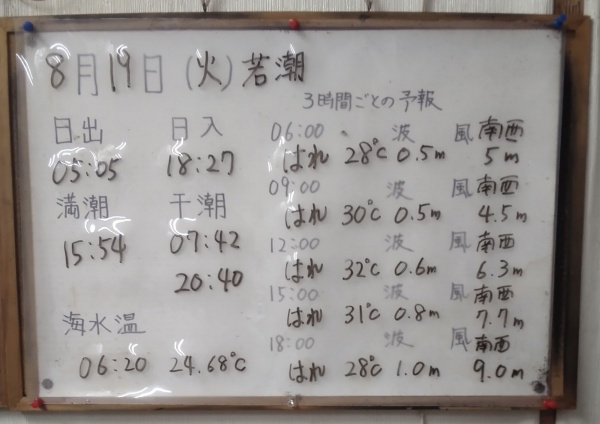 8月19日(火)若潮
3時間ごとの予報
日出 日入
05:05 18:27
満潮 干潮
15:54 07:42
20:40
海水温
06:20 24.68℃
06:00 波 風 南西
はれ 28℃ 0.5m 5m
09:00 波 風 南西
はれ 30℃ 0.5m 4.5m
12:00 波 風 南西
はれ 32℃ 0.6m 6.3m
15:00 波 風 南西
はれ 31℃ 0.8m 7.7m
18:00 波 風 南西
はれ 28℃ 1.0m 9.0m